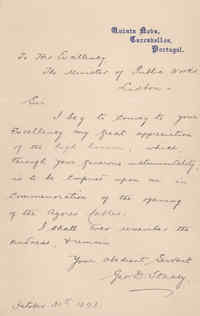 Quinta Nova,
Carcavellos,
Portugal.
To His Excellency
The Minister of Public Works
Lisbon
Sir
I beg to convey to your
Excellency my great appreciation
of the high honour, which
through your generous instrumentality,
is to be conferred upon me in
commemoration of the opening
of the Açores cables.
I shall ever remember the
kindness, & remain
Your obedient, Servant
Geo. D.
October 31st 1893.